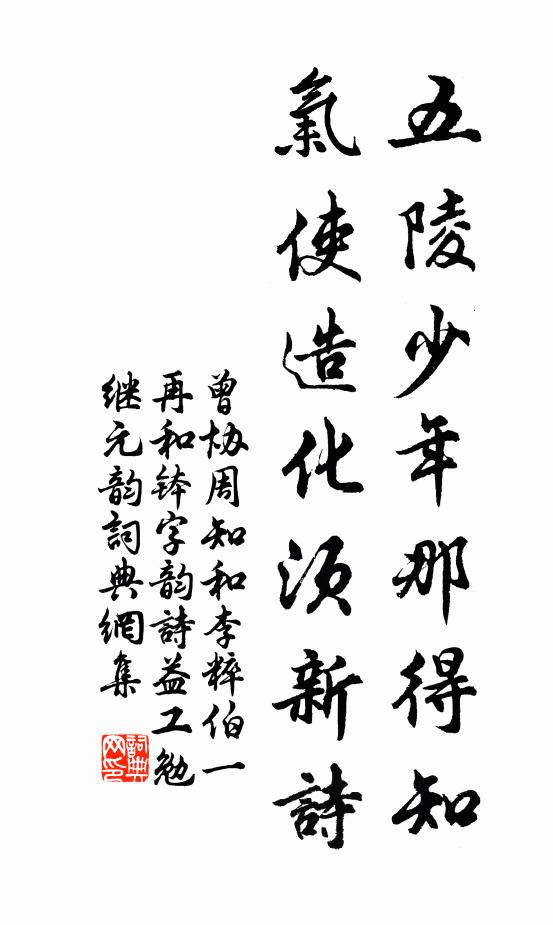 五陵少年那得知
氣使造化須新詩
曾协周知和李粹伯一
再和钵字韵詩益工勉
继元韵詞典網集
詞典网印